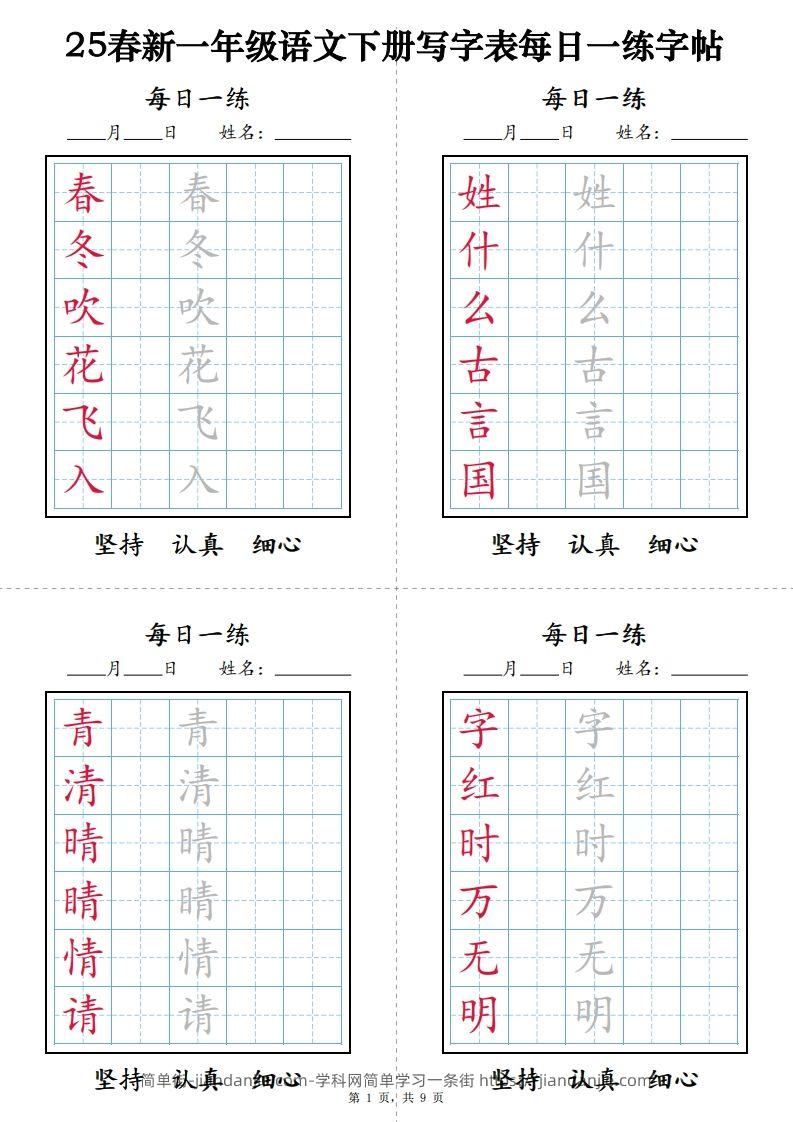 25春新一年级语文下册写字表每日一练字帖
每日一练
____月____日 姓名：________
春 春
冬 冬
吹 吹
花 花
飞 飞
入 入
坚持 认真 细心
每日一练
____月____日 姓名：________
姓 姓
什 什
么 么
古 古
言 言
国 国
坚持 认真 细心
每日一练
____月____日 姓名：________
青 青
清 清
晴 晴
睛 睛
情 情
请 请
坚持 认真 细心
每日一练
____月____日 姓名：________
字 字
红 红
时 时
万 万
无 无
明 明
坚持 认真 细心
简单街-jiandanjie.com-学科网简单学习一条街 https://jiandanjie.com
第 1 页，共 9 页